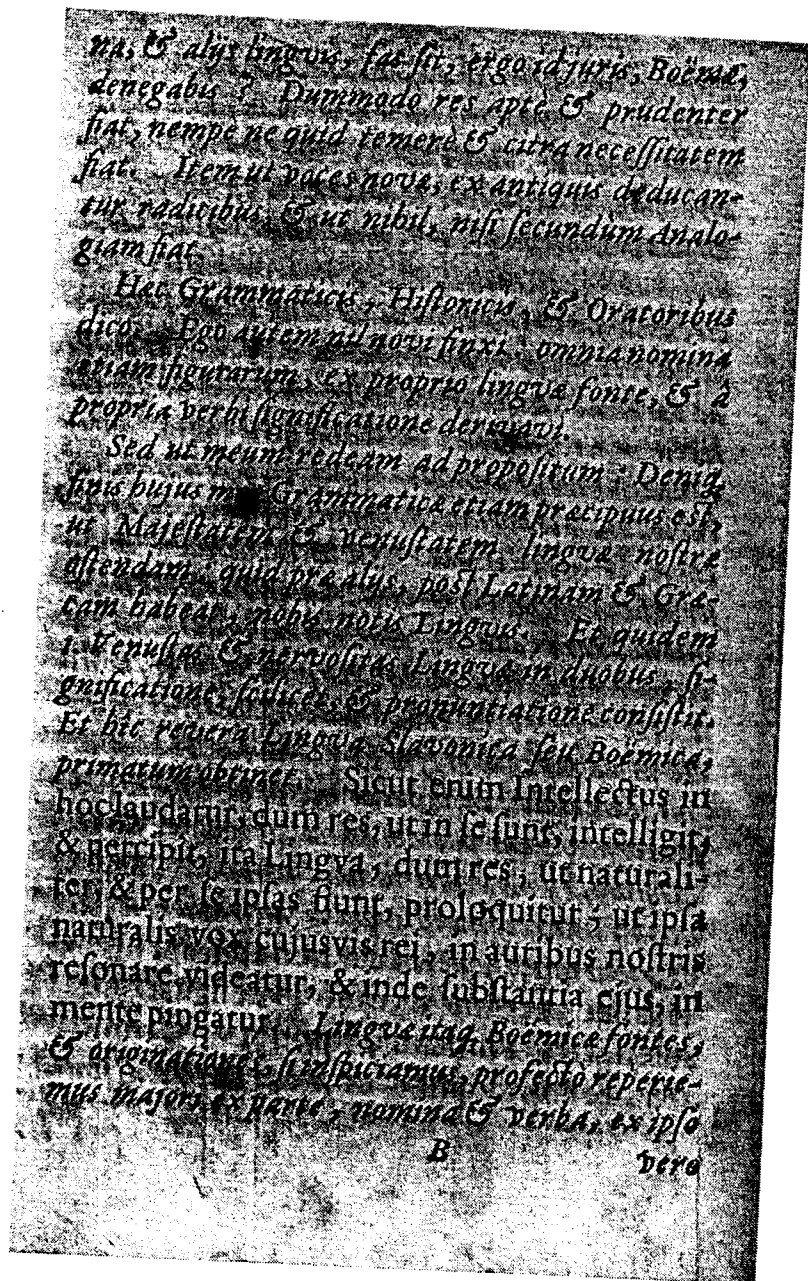 na, & alijs lingvis, fas sit, ergo id juris, Boëmæ,
denegabis ? Dummodo res aptè & prudenter
fiat, nempè ne quid temerè & citra necessitatem
fiat. Item ut voces novæ, ex antiquis deducan-
tur radicibus, & ut nihil, nisi secundùm Analo-
giam fiat.
Hæc Grammaticis, Historicis, & Oratoribus
dico. Ego autem nil novi finxi, omnia nomina
etiam figurarum, ex proprio lingvæ fonte, & à
propria verbi significatione derivavi.
Sed ut meum redeam ad propositum : Deniq;
finis hujus meæ Grammaticæ etiam præcipuus est,
ut Majestatem & venustatem lingvæ nostræ
ostendam, quid præ alijs, post Latinam & Græ-
cam habeat, nobis notis Lingvis. Et quidem
1. Venustas & nervositas Lingvæ in duobus, si-
gnificatione, scilicet, & pronuntiatione consistit.
Et hic reverà Lingva Slavonica seu Boëmica,
primatum obtinet. Sicut enim Intellectus in
hoc laudatur, dum res, ut in se sunt, intelligit,
& percipit, ita Lingva, dum res, ut naturali-
ter, & per se ipsas fiunt, proloquitur ; ut ipsa
naturalis vox cujusvis rei, in auribus nostris
resonare videatur, & inde substantia ejus, in
mente pingatur. Lingvæ itaq; Boëmicæ fontes,
& originationes, si inspiciamus, profectò reperie-
mus majori ex parte, nomina & verba, ex ipso
B vero